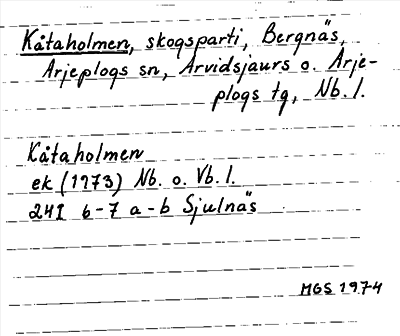 Kåtaholmen, skogsparti, Bergnäs,
Arjeplogs sn, Arvidsjaurs o. Arje-
plogs tg, Nb. l.
Kåtaholmen
ek (1973) Nb. o. Vb. l.
24I 6-7 a-b Sjulnäs
MGS 1974